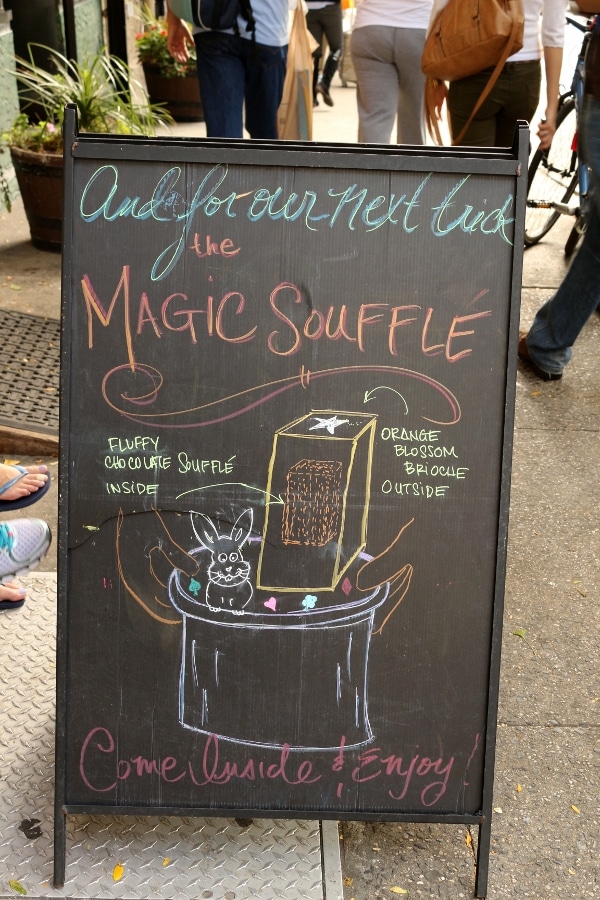 And for our next trick
the
MAGIC SOUFFLÉ
FLUFFY
CHOCOLATE SOUFFLÉ
INSIDE
ORANGE
BLOSSOM
BRIOCHE
OUTSIDE
Come Inside & Enjoy!